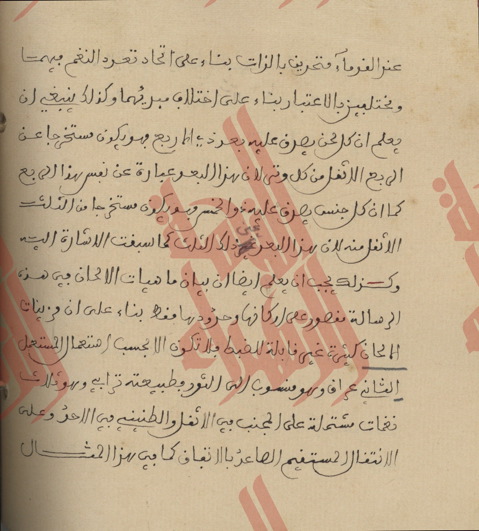 عند القدماء متحدين بالذات بناء على اتحاد تعدد النغم فيهما
ومختلفين بالاعتبار بناء على اختلاف مبدئهما وكذلك ينبغي ان
يعلم ان كل لحن يصدق عليه بعد ذي الاربع فهو يكون مستخرجا عن
الربع الاثقل من كل وتر لان هذا البعد عبارة عن نفس هذا الربع
كما ان كل جنس يصدق عليه ذو الخمس فهو يكون مستخرجا من الثلث
الاثقل منه لان هذا البعد هو ذلك الثلث كما سبقت الاشارة اليه
وكذلك يجب ان يعلم ايضا ان بيان ماهيات الالحان في هذه
الرسالة مقصور على اركانها وحدودها فقط بناء على ان مزينات
الالحان كثيرة غير قابلة للضبط فلا تكون الا بحسب استعمال المستعمل
الثاني عراق وهو منسوب الى الثور وطبيعته ترابي وهو ثلاث
نغمات مشتملة على المجنب في الاثقل والطنيني في الاحد وعلى
الانتقال المستقيم الصاعد بالاتفاق كما في هذا المثال